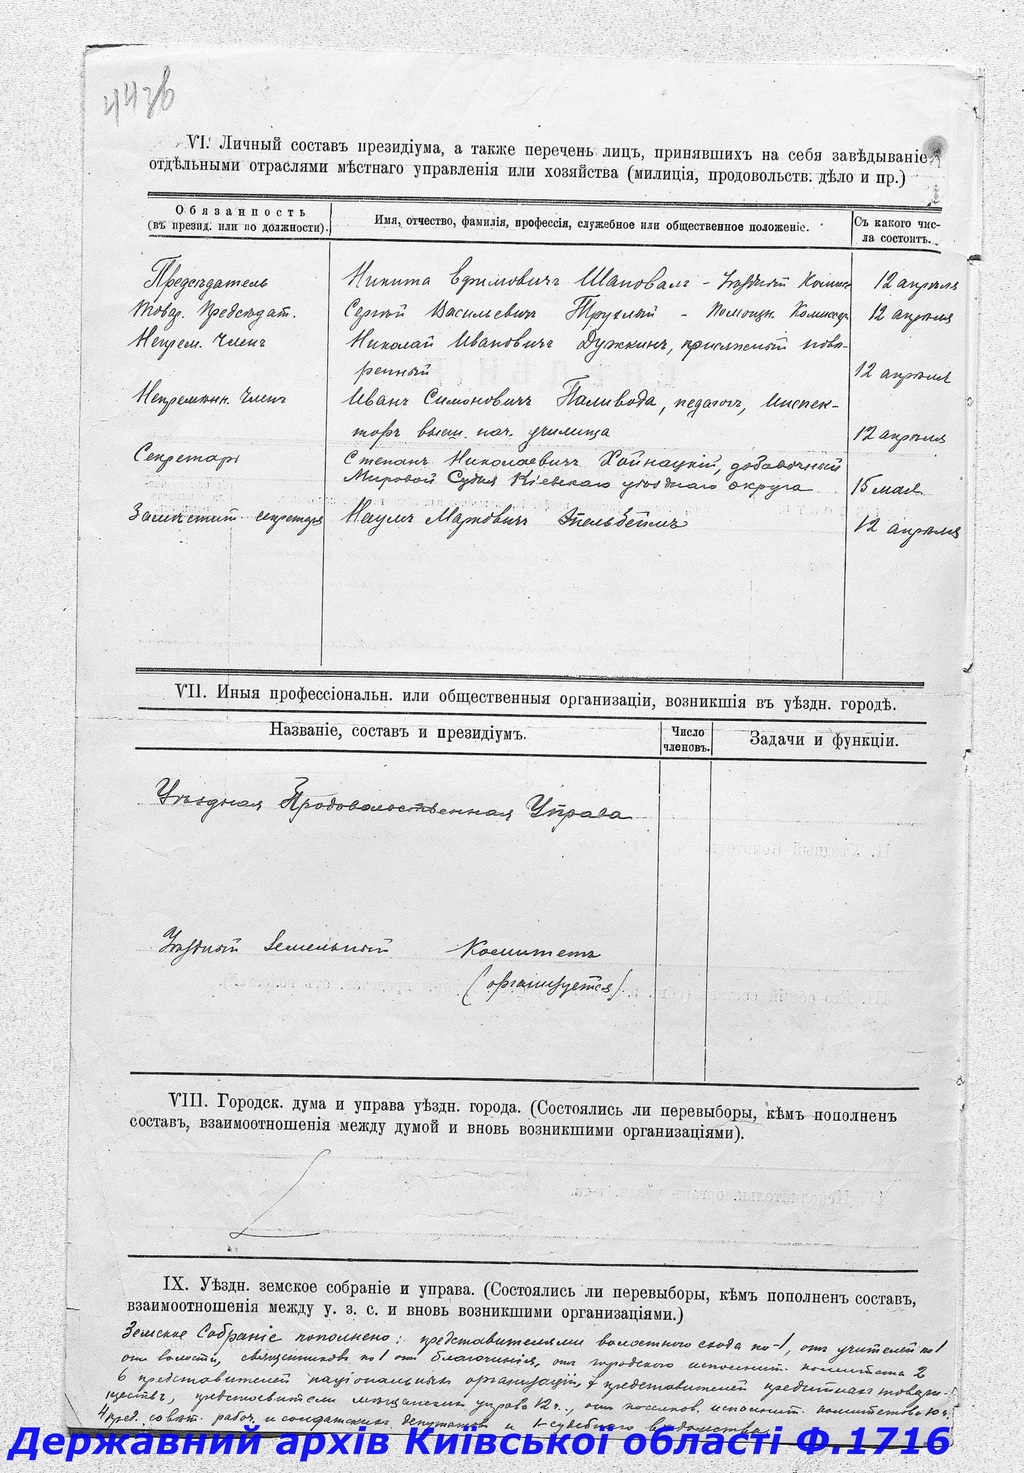 44зв
VI. Личный составъ президіума, а также перечень лицъ, принявшихъ на себя завѣдываніе
отдѣльными отраслями мѣстнаго управленія или хозяйства (милиція, продовольств. дѣло и пр.)
Обязанность
(въ презид. или по должности).
Имя, отчество, фамилія, профессія, служебное или общественное положеніе.
Съ какого чис-
ла состоитъ.
Предсѣдатель Никита Ефимовичъ Шаповалъ - Уѣздный Комис 12 апрѣля
Товар. Предсѣдат. Сергѣй Васильевичъ - Помощн. Комиссара 12 апрѣля
Непрем. Членъ Николай Ивановичъ присяжный повѣ-
ренный 12 апрѣля
Непремѣнн. Членъ Иванъ Симоновичъ Паливода, педагогъ, Инспек-
торъ высш. нач. училища 12 апрѣля
Секретарь Степанъ Николаевичъ Хойнацкій, добавочный
Мировой Судья Кіевскаго уѣзднаго округа 15 мая
Замѣстит. секретаря Наумъ Марковичъ 12 апрѣля
VII. Иныя профессіональн. или общественныя организаціи, возникшія въ уѣздн. городѣ.
Названіе, составъ и президіумъ.
Число
членовъ.
Задачи и функціи.
Уѣздная Продовольственная Управа
Уѣздный Земельный Комитетъ
(организуется)
VIII. Городск. дума и управа уѣздн. города. (Состоялись ли перевыборы, кѣмъ пополненъ
составъ, взаимоотношенія между думой и вновь возникшими организаціями).
IX. Уѣздн. земское собраніе и управа. (Состоялись ли перевыборы, кѣмъ пополненъ составъ,
взаимоотношенія между у. з. с. и вновь возникшими организаціями.)
Земское Собраніе пополнено: представителями волостного схода по-1, отъ учителей по 1
отъ волости, священниковъ по 1 отъ благочинія, отъ городского исполнит. комитета 2
6 представителей національныхъ организацій, представителей кредитныхъ товари-
ществъ, представители мѣщанских управъ 12 ч., отъ поселков. исполнит. комитетовъ 10 ч.
4 пред. совѣт. рабоч. и солдатскихъ депутатовъ и 1 судебнаго вѣдомства
Державний архів Київської області Ф.1716